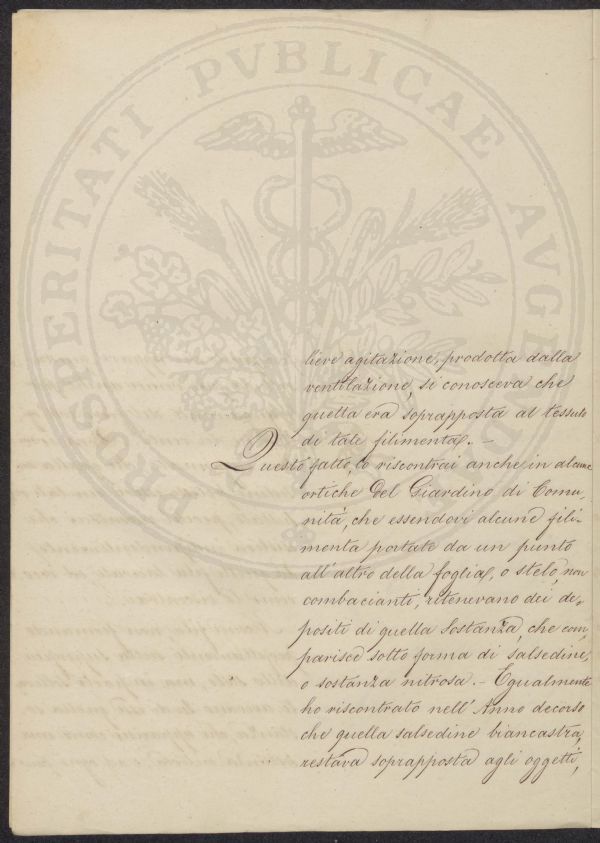 PROSPERITATI PVBLICAE AVGE
lieve agitazione, prodotta dalla
ventilazione, si conosceva che
quella era soprapposta al tessuto
di tale filimenta. –
Questo fatto, lo riscontrai anche in alcune
ortiche del Giardino di Comu-
nità, che essendovi alcune fili-
menta portate da un punto
all'altro della foglia, o stelo, non
combacianti, ritenevano dei de-
positi di quella Sostanza, che com-
parisce sotto forma di salsedine,
o sostanza nitrosa. – Egualmente
ho riscontrato nell'Anno decorso
che quella salsedine biancastra,
restava soprapposta agli oggetti,